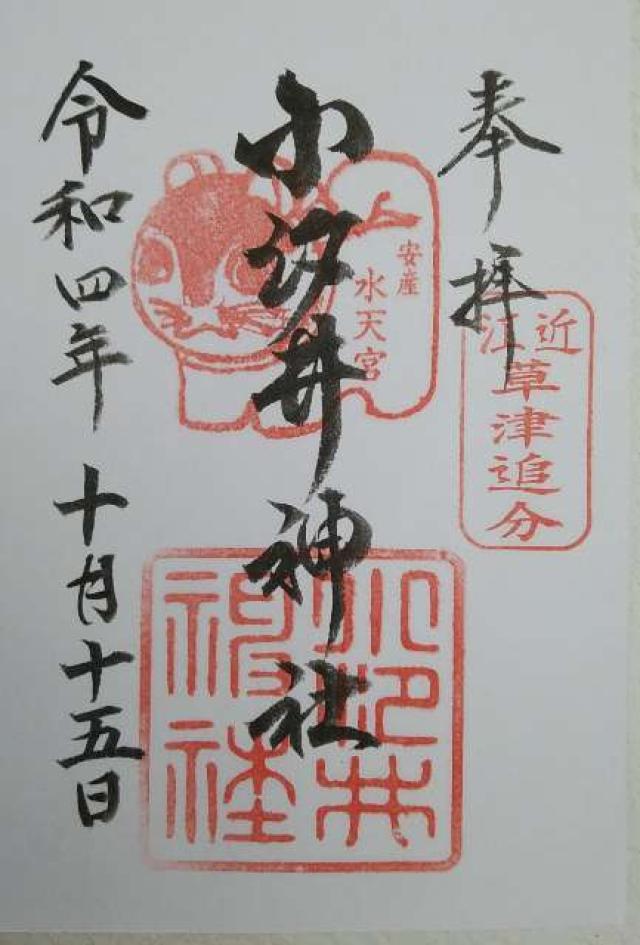 奉拝
近江
草津追分
小汐井神社
安産
水天宮
小汐井
神社
令和四年十月十五日